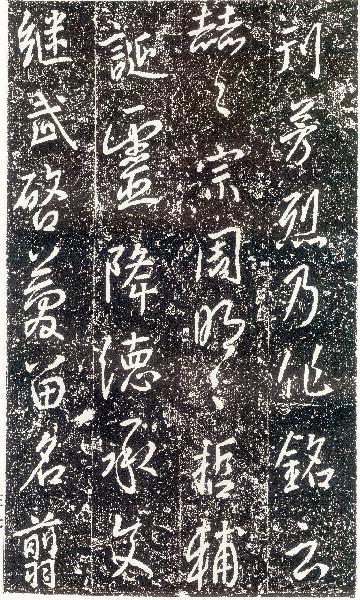 刊芳烈乃作銘云
赫〻宗周明〻哲輔
誕靈降德承文
継武啓慶留名翦